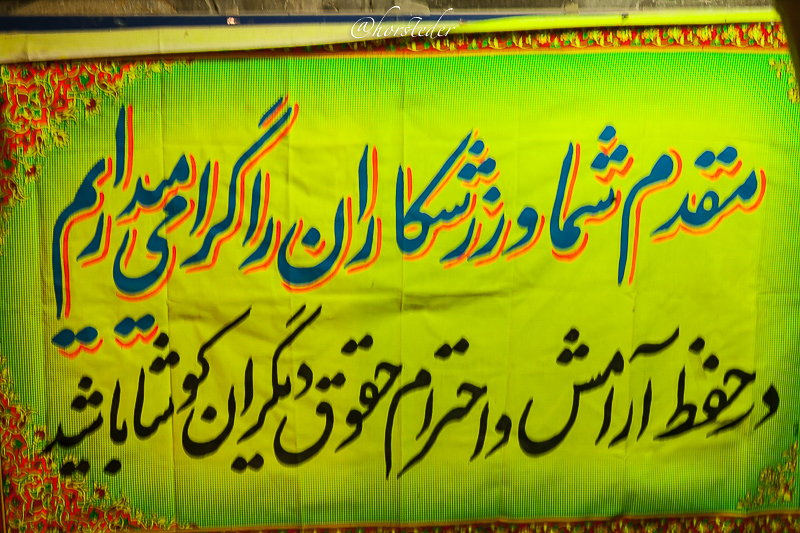 @horsteder
مقدم شما ورزشکاران را گرامی میداریم
در حفظ آرامش و احترام حقوق دیگران کوشا باشید